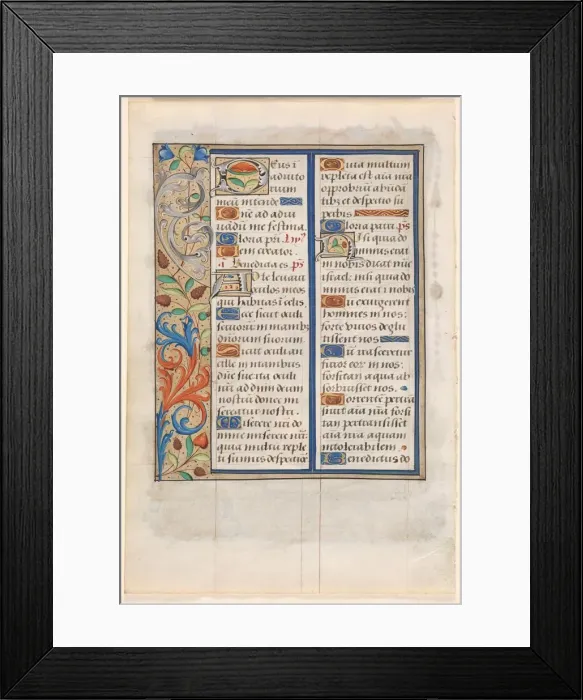 Deus i
adiuto
rium
meū intende
Dñe ad adiu
uādū me festina.
Gloria pr̄i. ym̄ꝰ
Mem creator.
añ Benedicta es. ps
Ad te leuaui
oculos meos
qui habitas in celis.
Ecce sicut oculi
seruorū in manibꝰ
dñorum suorum.
Sicut oculi an
cille in manibus
dñe sue ita oculi
nr̄i ad dñm deum
nostrū donec mi
sereatur nostri.
Miserere nr̄i do
mine miserere nr̄i
quia multū reple
ti sumus despectiōe
Quia multum
repleta est aīa nr̄a
opprobriū abūdā
tibꝫ et despectio su
perbis.
Gloria patri. ps
Nisi quia do
minus erat
in nobis dicat nūc
israel: nisi quia do
minus erat ī nobis
Cū exurgerent
homines in nos:
forte viuos deglu
tissent nos
Cū irasceretur
furor eorū in nos:
forsitan aqua ab
sorbuisset nos.
Torrentē pertrā
siuit aīa nr̄a forsi
tan pertransisset
aīa nr̄a aquam
intolerabilem.
Benedictus do